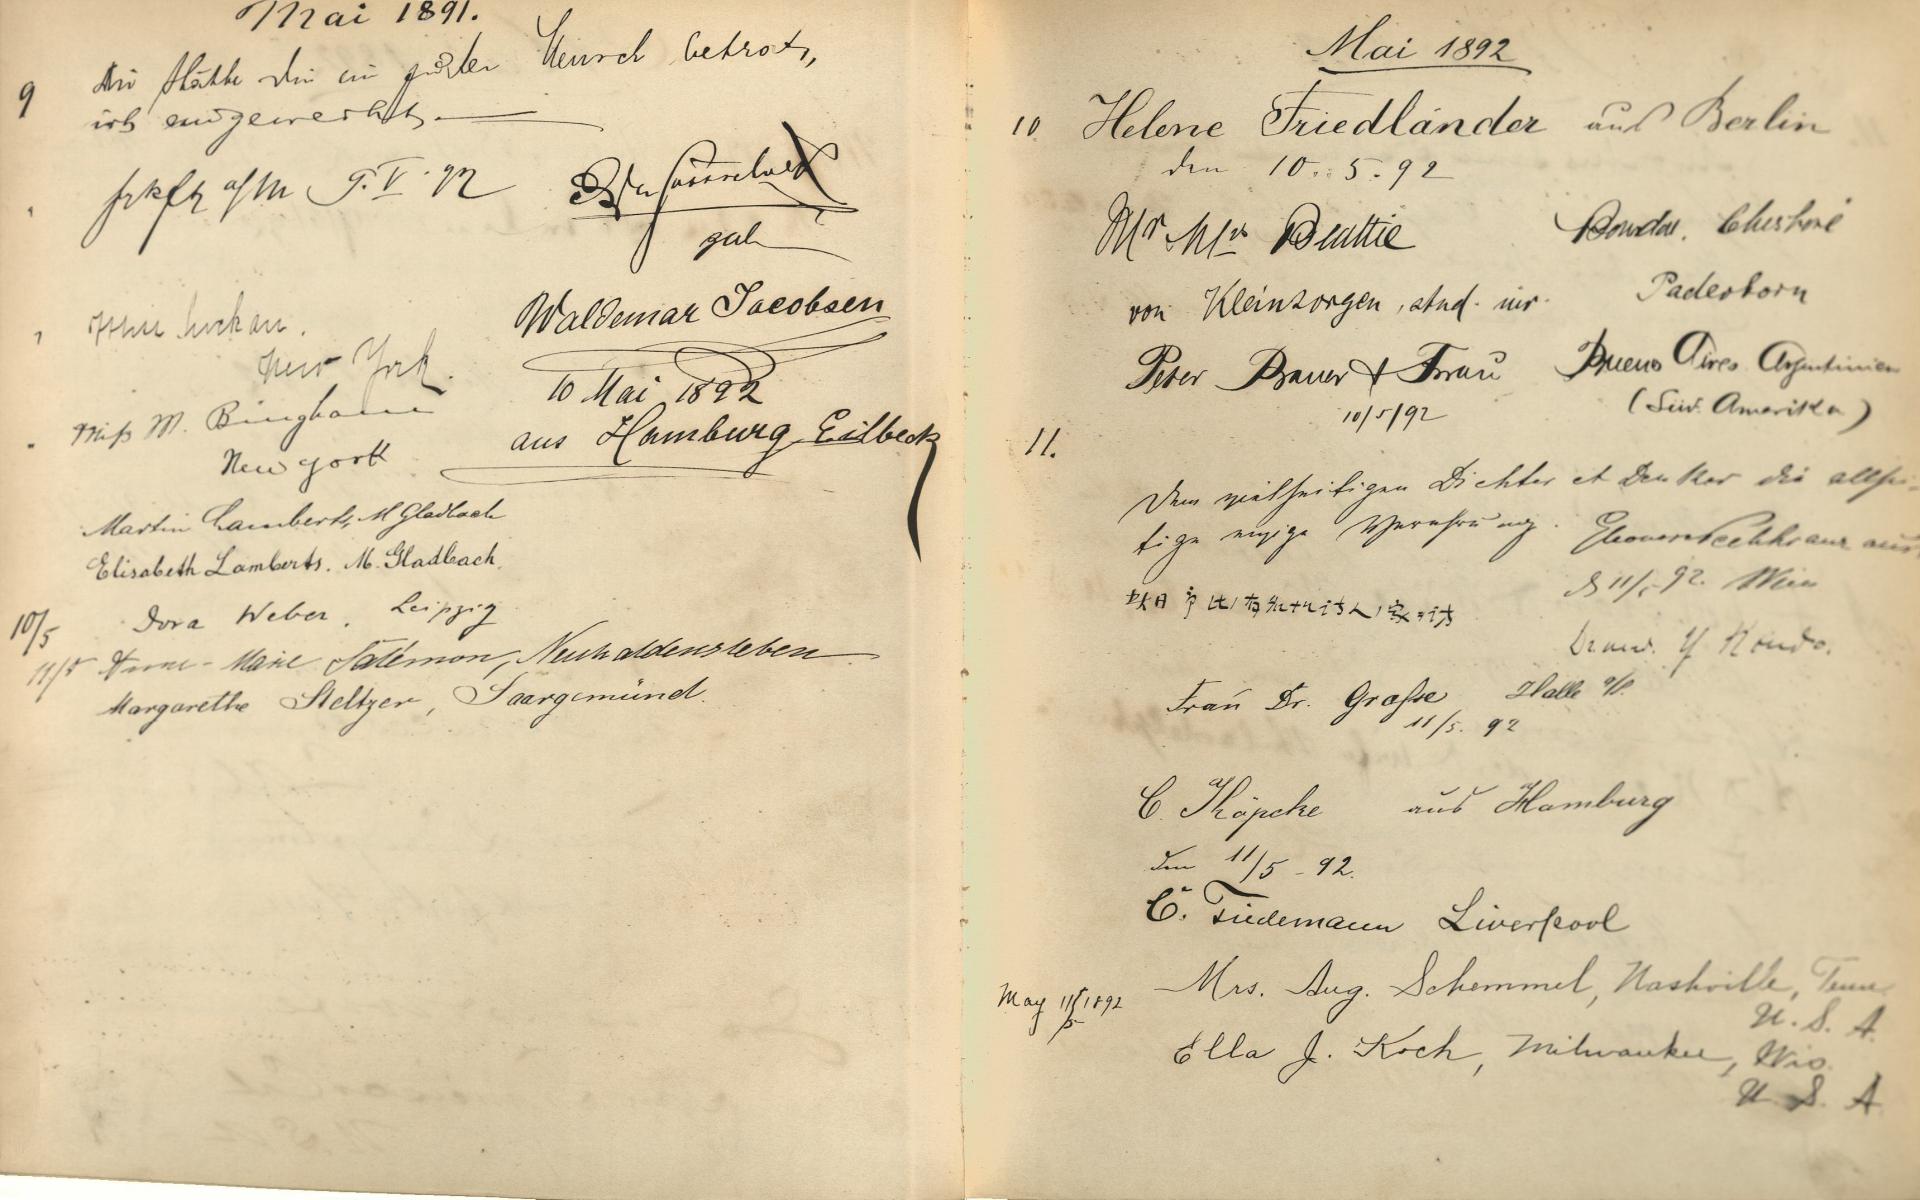 Mai 1891.
9
Die Stätte die ein guter Mensch betrat,
ist eingeweiht.
Frkft a/M 9. V. 92
Waldemar Jacobsen
10 Mai 1892
aus Hamburg Eilbeck
New York.
Miss M. Bingham
New York
Martin Lamberts, M Gladbach
Elisabeth Lamberts. M. Gladbach.
10/5
Dora Weber, Leipzig
11/5 Anne-Marie Salomon, Neuhaldensleben
Margarethe Steltzer, Saargemünd.
Mai 1892
10 Helene Friedländer aus Berlin
den 10.5.92
Mr Mrs Beattie Bowdon, Cheshire
von Kleinsorgen, stud. iur. Paderborn
Peter Bauer & Frau Buenos Aires Argentinien
10/5/92 (Süd. Amerika)
11.
Dem vielseitigen Dichter et Denker die allsei-
tige ewige Verehrung.
11/5 92. Wien
Y Kondo.
Frau Dr. Grosse Halle a/S.
11/5. 92
C. Köpcke aus Hamburg
den 11/5 - 92.
C. Tiedemann Liverpool
May 11/5 1892
Mrs. Aug. Schemmel, Nashville, Tenn
U. S. A.
Ella J. Koch, Milwaukee, Wis.
U. S. A